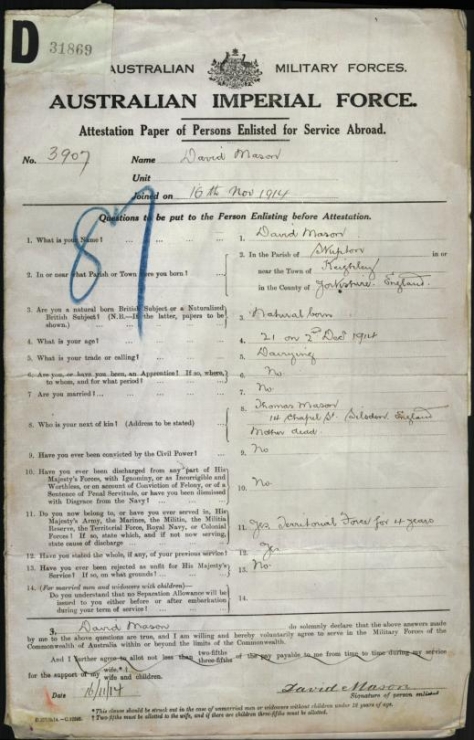 D 31869
AUSTRALIAN MILITARY FORCES.
AUSTRALIAN IMPERIAL FORCE.
Attestation Paper of Persons Enlisted for Service Abroad.
No. 3907 Name David Mason
Unit
Joined on 16th Nov 1914
87
Questions to be put to the Person Enlisting before Attestation.
1. What is your Name? ... ... ... 1. David Mason
2. In or near what Parish or Town were you born? ... 2. In the Parish of Skipton in or
near the Town of Keighley
in the County of Yorkshire England
3. Are you a natural born British Subject or a Naturalised
British Subject? (N.B.—If the latter, papers to be
shown.) 3. Natural born
4. What is your age? ... ... ... 4. 21 on 2nd Decr 1914
5. What is your trade or calling? ... ... 5. Dairying
6. Are you, or have you been, an Apprentice? If so, where,
to whom, and for what period? 6. No
7. Are you married? ... ... ... 7. No
8. Who is your next of kin? (Address to be stated) ... 8. Thomas Mason
14 Chapel St. Silsden England
Mother dead
9. Have you ever been convicted by the Civil Power? ... 9. No
10. Have you ever been discharged from any part of His
Majesty's Forces, with Ignominy, or as Incorrigible and
Worthless, or on account of Conviction of Felony, or of a
Sentence of Penal Servitude, or have you been dismissed
with Disgrace from the Navy? ... 10. No
11. Do you now belong to, or have you ever served in, His
Majesty's Army, the Marines, the Militia, the Militia
Reserve, the Territorial Force, Royal Navy, or Colonial
Forces? If so, state which, and if not now serving,
state cause of discharge 11. Yes Territorial Force for 4 years
12. Have you stated the whole, if any, of your previous service? 12. Yes
13. Have you ever been rejected as unfit for His Majesty's
Service? If so, on what grounds? ... 13. No
14. (For married men and widowers with children)—
Do you understand that no Separation Allowance will be
issued to you either before or after embarkation
during your term of service? 14.
3. David Mason do solemnly declare that the above answers made
by me to the above questions are true, and I am willing and hereby voluntarily agree to serve in the Military Forces of the
Commonwealth of Australia within or beyond the limits of the Commonwealth.
And I further agree to allot not less than two-fifths
three-fifths of the pay payable to me from time to time during my service
for the support of my wife*†
wife and children.
Date 16/11/14 David Mason
Signature of person enlisted
* This clause should be struck out in the case of unmarried men or widowers without children under 18 years of age.
† Two-fifths must be allotted to the wife, and if there are children three-fifths must be allotted.